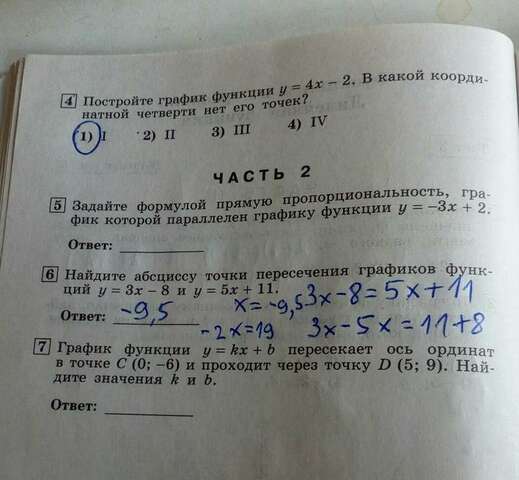 4 Постройте график функции y = 4x − 2. В какой коорди-
натной четверти нет его точек?
1) I 2) II 3) III 4) IV
ЧАСТЬ 2
5 Задайте формулой прямую пропорциональность, гра-
фик которой параллелен графику функции y = −3x + 2.
Ответ:
6 Найдите абсциссу точки пересечения графиков функ-
ций y = 3x − 8 и y = 5x + 11.
x = -9,5 3x-8=5x+11
Ответ: -9,5
-2x=19 3x-5x=11+8
7 График функции y = kx + b пересекает ось ординат
в точке C (0; −6) и проходит через точку D (5; 9). Най-
дите значения k и b.
Ответ: